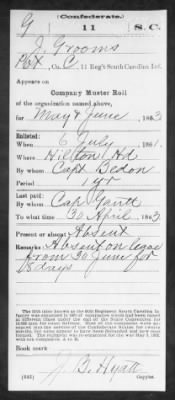 (Confederate.)
G 11 S.C.
J. Grooms
Pvt, Co. C, 11 Reg't South Carolina Inf.
Appears on
Company Muster Roll
of the organization named above,
for May & June, 1863
Enlisted:
When 6 July, 1861.
Where Hilton Hd
By whom Capt Bedon
Period 1 yr
Last paid:
By whom Cap Gantt
To what time 30 April, 1863
Present or absent Absent
Remarks: Absent on leave
from 30 June for
8 days
Book mark:
J. B. Hyatt
Copyist.